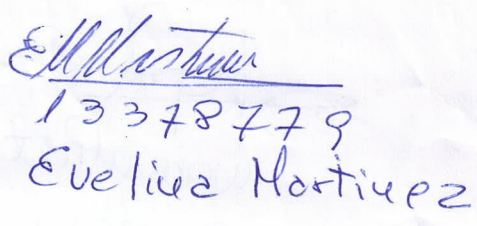 EMartinez
13378779
Evelina Martinez